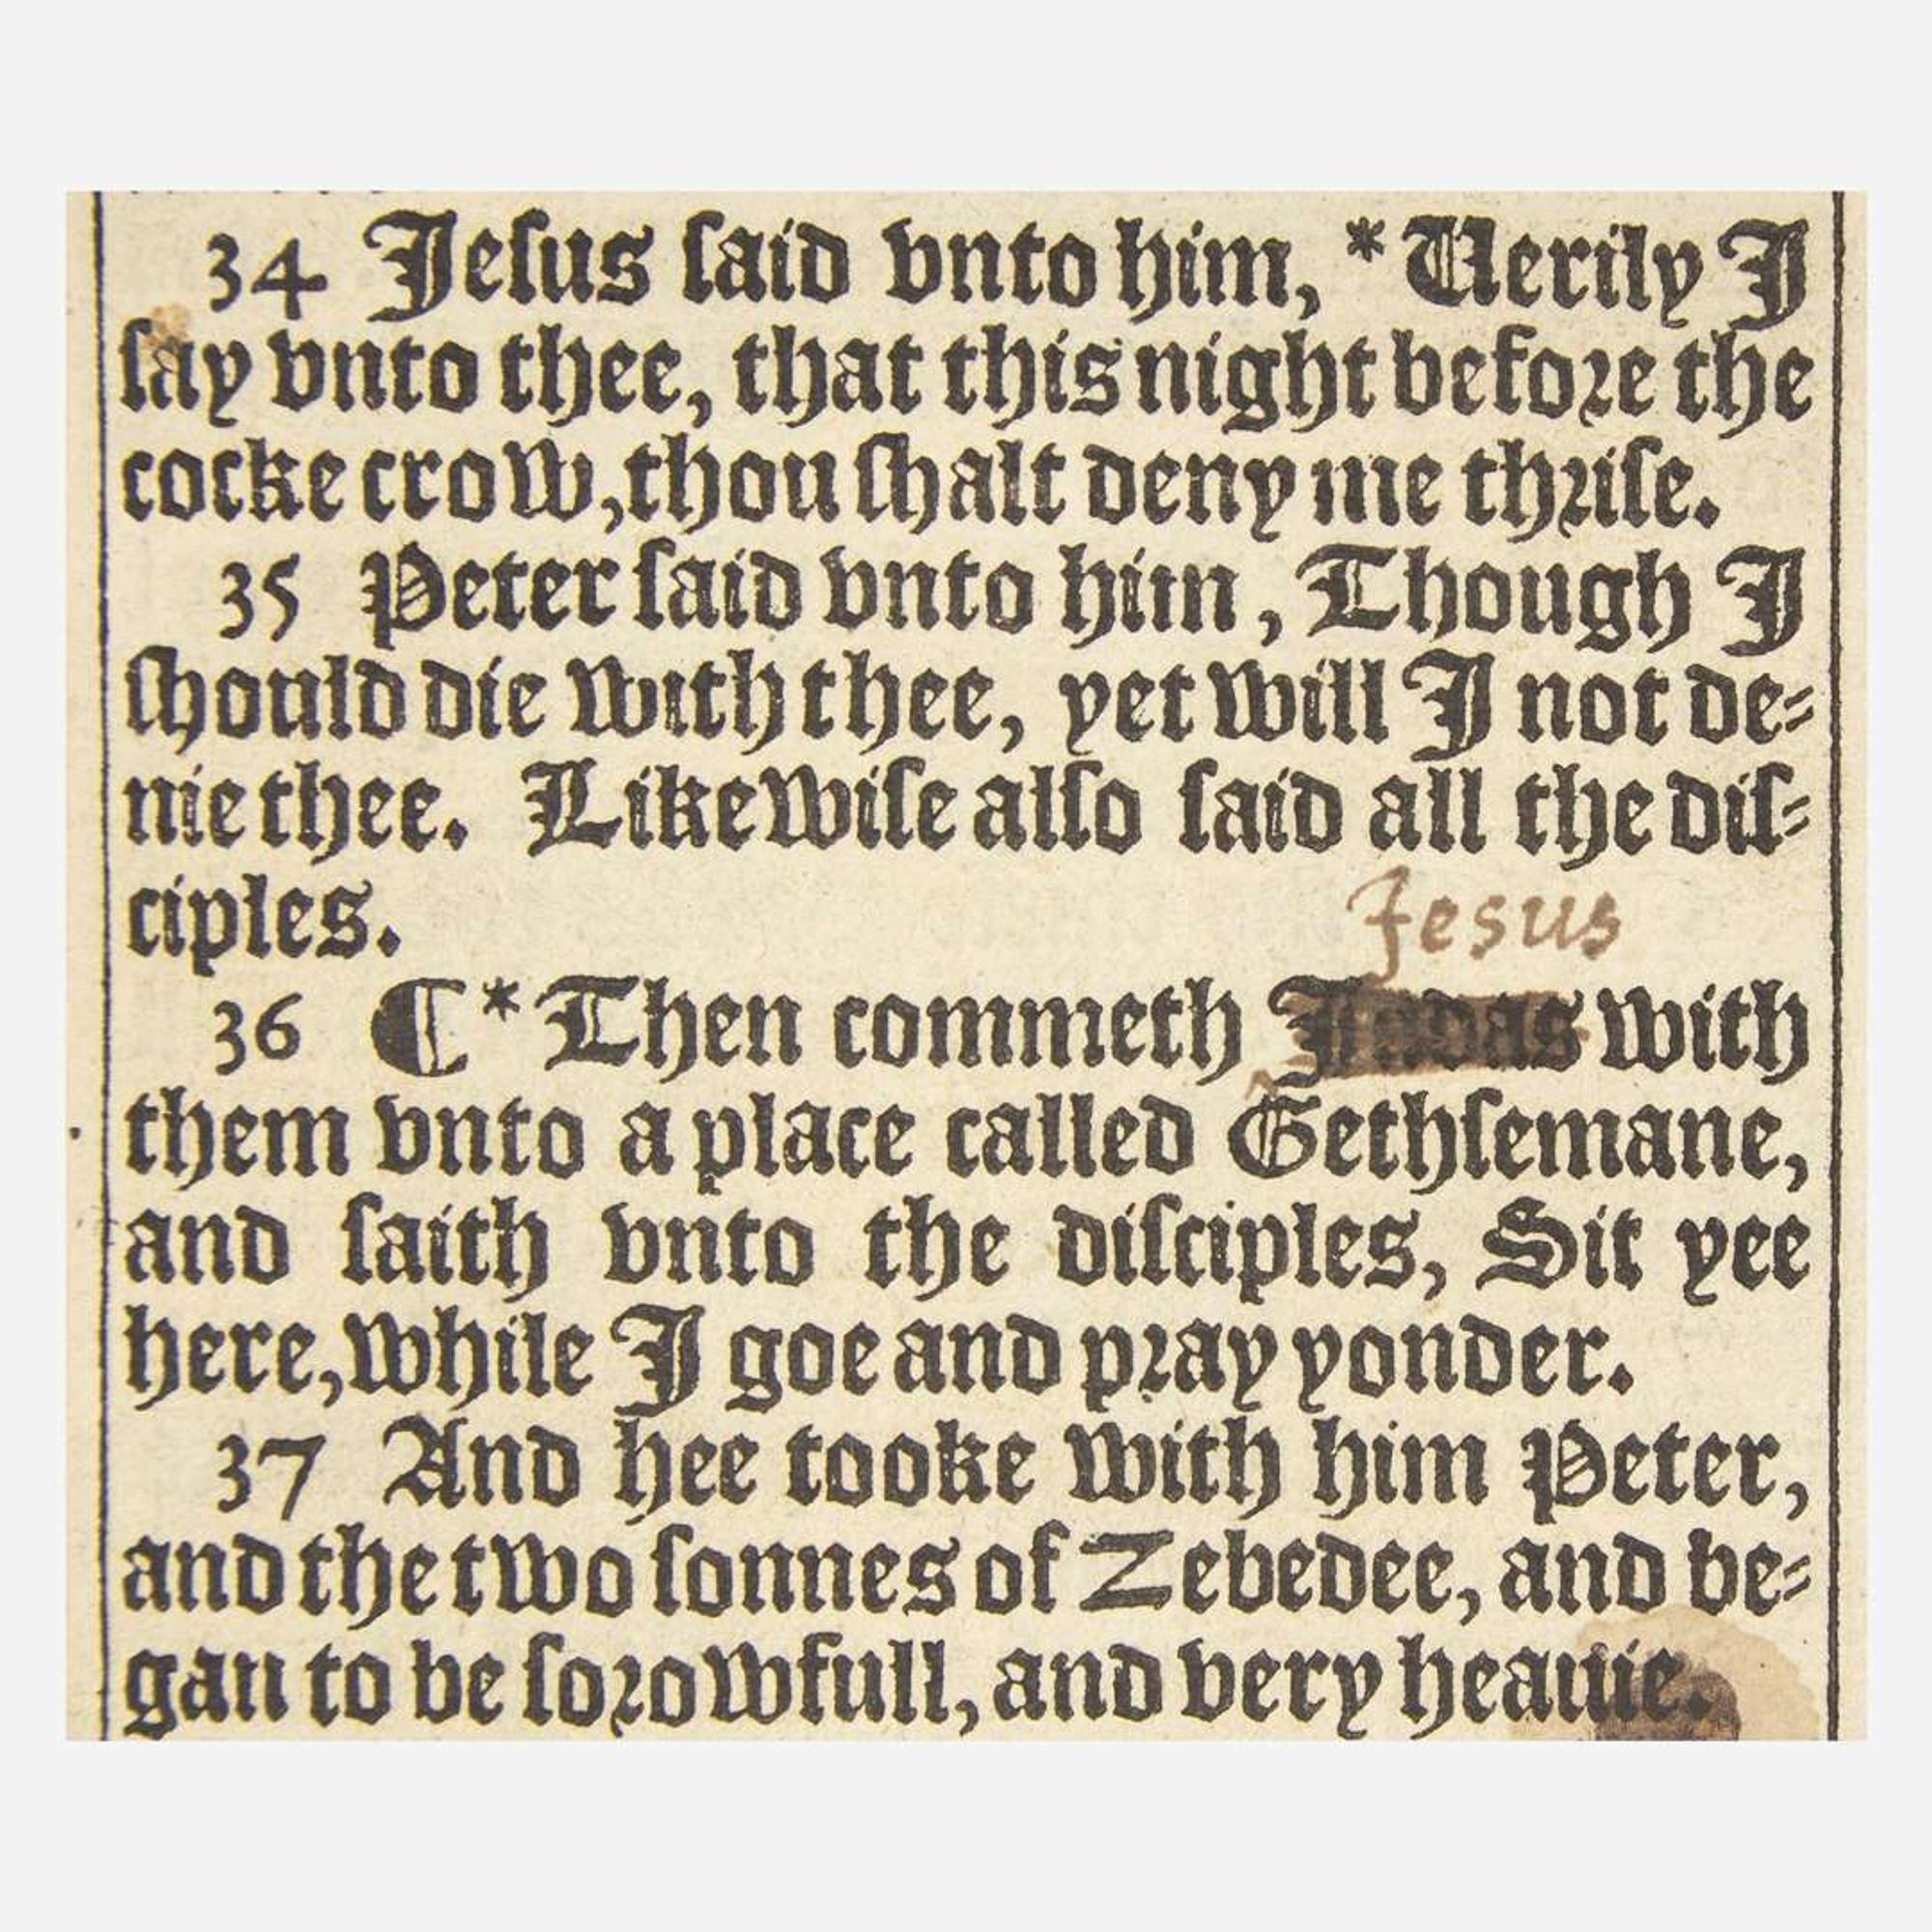 34 Jeſus ſaid vnto him, * Verily I
ſay vnto thee, that this night before the
cocke crow, thou ſhalt deny me thriſe.
35 Peter ſaid vnto him, Though I
ſhould die with thee, yet will I not de⸗
nie thee. Likewiſe alſo ſaid all the diſ⸗
ciples.
Jesus
36 ¶ * Then commeth Judas with
them vnto a place called Gethſemane,
and ſaith vnto the diſciples, Sit yee
here, while I goe and pray yonder.
37 And hee tooke with him Peter,
and the two ſonnes of Zebedee, and be⸗
gan to be ſorowfull, and very heauie.